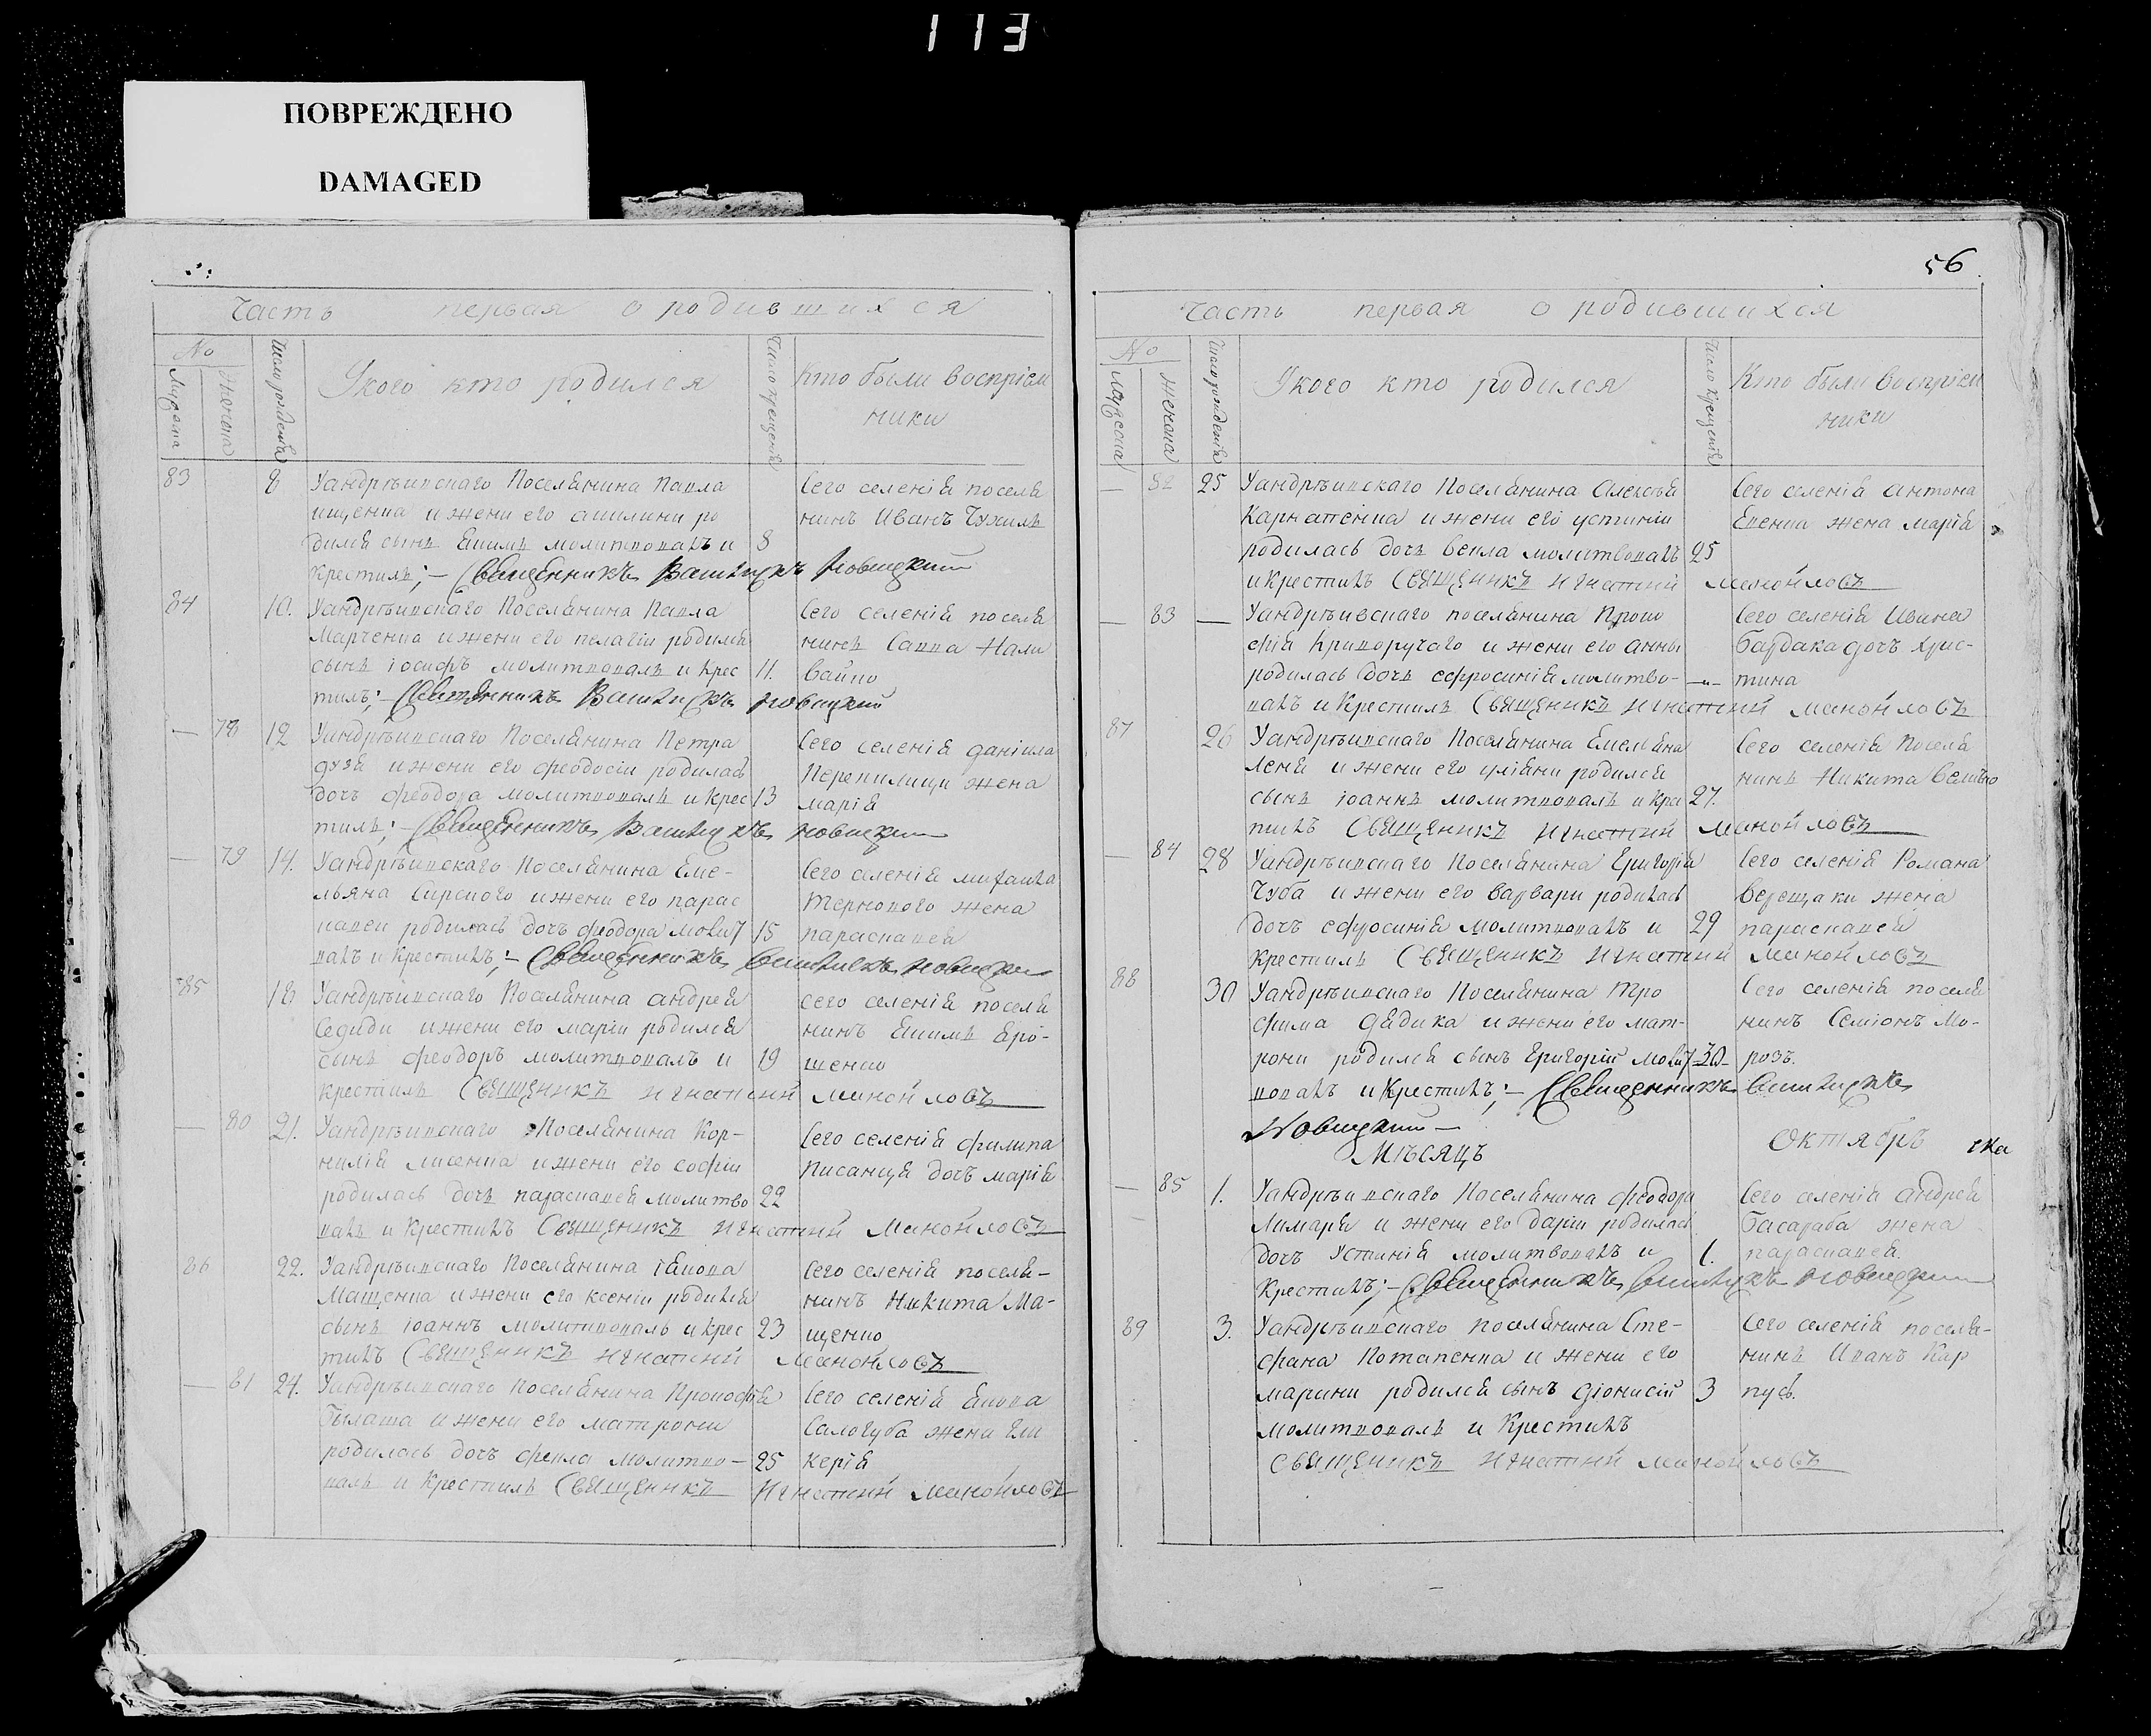 113
ПОВРЕЖДЕНО
DAMAGED
Часть первая о родившихся
No
Мужеска
Женска
Число рожденія
Укого кто родился
Число крещенія
Кто были воспріем
ники
83 8 Уандрѣивскаго Поселянина Павла
ищенка и жени его акилини ро
дился сынъ Екимъ молитвовалъ и 8
крестилъ;– Священникъ Новицкий
Сего селенія поселя
нинъ Иванъ Чухилъ
84 10. Уандрѣивскаго Поселянина Павла
Марченка и жени его пелагіи родился
сынъ іосифъ молитвовалъ и крес 11.
тилъ;– Священникъ Новицкий
Сего селенія поселя
нинъ Савва Нали
вайко
— 78 12 Уандрѣивскаго Поселянина Петра
дузя и жени его феодосіи родилась
дочъ феодора молитвовалъ и крес 13
тилъ;– Священникъ Новицкий
Сего селенія даніила
Перепилици жена
марія
— 79 14. Уандрѣивскаго Поселянина Еме–
льяна Сирского и жени его парас
кавеи родилась дочъ феодора молит 15
валъ и крестилъ;– Священникъ Новицкий
Сего селенія михаила
Терно́вого жена
параскавея
85 18 Уандрѣивскаго Поселянина андрея
Седиди и жени его маріи родился
сынъ феодоръ молитвовалъ и 19
крестилъ Священикъ Игнатий Манойловъ
сего селенія поселя
нинъ Екимъ Яро–
шенко
— 80 21. Уандрѣивскаго Поселянина Кор–
нилія лисенка и жени его софіи
родилась дочъ параскавея молитво 22
валъ и крестилъ Священикъ Игнатий Манойловъ
Сего селенія филипа
Писанця дочъ марія
86 22. Уандрѣивскаго Поселянина іакова
Мащенка и жени его ксеніи родился
сынъ іоаннъ молитвовалъ и крес 23
тилъ Священикъ Игнатий Манойловъ
Сего селенія поселя–
нинъ Никита Ма–
щенко
— 81 24. Уандрѣивскаго Поселянина Прокофія
Гылаша и жени его матрони
родилась дочъ фекла молитво– 25
валъ и крестилъ Священикъ Игнатий Манойловъ
Сего селенія Якова
Салогуба жена Гли
керія
56.
Часть первая о родившихся
No
Мужеска
Женска
Число рожденія
Укого кто родился
Число крещенія
Кто были воспріем
ники
— 82 25 Уандрѣивскаго Поселянина Алексѣя
Карнапенка и жени его устиніи
родилась дочъ векла молитвовалъ 25
и крестилъ Священикъ Игнатий Манойловъ
Сего селенія антона
Евенка жена марія
— 83 — Уандрѣивскаго поселянина Проко
фія Криворучаго и жени его анны
родилась дочъ ефросинія молитво– –„–
валъ и крестилъ Священикъ Игнатий Манойловъ
Сего селенія Ивана
бардака дочъ хрис–
тина
87 26 Уандрѣивскаго Поселянина Емельяна
леня и жени его уліяни родился
сынъ іоаннъ молитвовалъ и крес 27.
тилъ Священикъ Игнатий Манойловъ
Сего селенія Поселя
нинъ Никита Велико
— 84 28 Уандрѣивскаго Поселянина Григорія
Чуба и жени его варвари родилась
дочъ ефросинія молитвовалъ и 29
крестилъ Священикъ Игнатий Манойловъ
Сего селенія Романа
верещаки жена
параскавея
88 30 Уандрѣивскаго Поселянина Тро
фима дядика и жени его мат–
рони родился сынъ Григорій молит 30
вовалъ и крестилъ;– Священникъ
Новицкий –
Сего селенія поселя
нинъ Семіонъ Мо–
розъ.
Мѣсяцъ Октябръ
— 85 1. Уандрѣивскаго Поселянина феодора
Лимаря и жени его даріи родилась
дочъ Устинія молитвовалъ и 1.
крестилъ;– Священникъ Новицкий
Сего селенія андрея
басараба жена
параскавея.
89 3. Уандрѣивскаго поселянина Сте–
фана Потапенка и жени его
марини родился сынъ діонисій 3
молитвовалъ и крестилъ
Священикъ Игнатий Манойловъ
Сего селенія поселя–
нинъ Иванъ Кар
пусь.